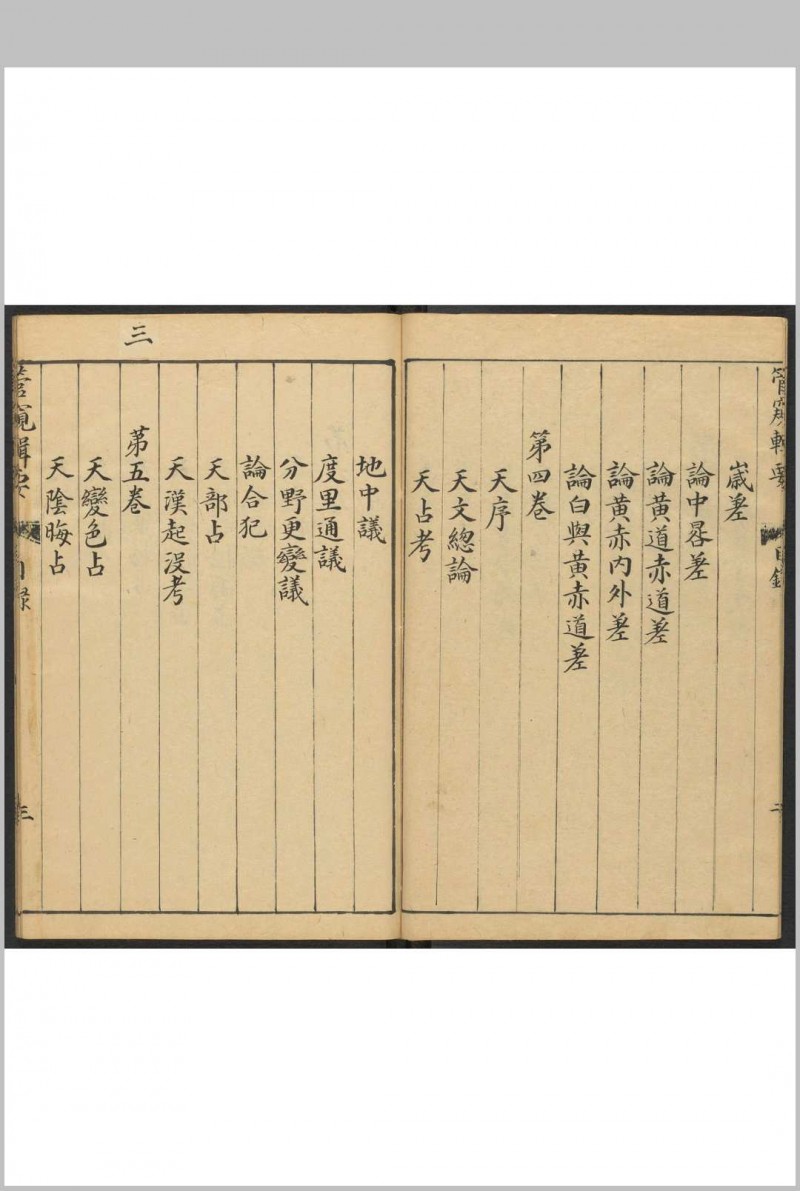 管窺輯要
目錄
二
歲差
論中晷差
論黃道赤道差
論黃赤內外差
論白與黃赤道差
第四卷
天序
天文總論
天占考
三
地中議
度里通議
分野更變議
論合犯
天部占
天漢起沒考
第五卷
天變色占
天陰晦占
管窺輯要
目録
三